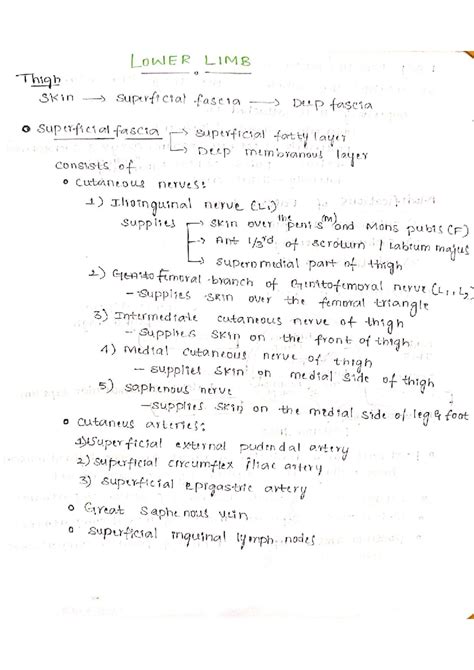 LOWER LIMB
Thigh
Skin → Superficial fascia → Deep fascia
Superficial fascia → Superficial fatty layer
→ Deep membranous layer
consists of
Cutaneous nerves:
1) Ilioinguinal nerve (L1)
supplies → skin over the penis (m) and Mons pubis (F)
→ Ant 1/3rd of scrotum / Labium majus
→ superomedial part of thigh
2) Genitofemoral branch of Genitofemoral nerve (L1, L2)
- Supplies skin over the femoral triangle
3) Intermediate cutaneous nerve of thigh
- Supplies skin on the front of thigh
4) Medial cutaneous nerve of thigh
- supplies skin on medial side of thigh
5) Saphenous nerve
- supplies skin on the medial side of leg & foot
Cutaneus arteries:
1) Superficial external pudendal artery
2) Superficial circumflex iliac artery
3) Superficial epigastric artery
Great Saphenous vein
Superficial inguinal lymph nodes